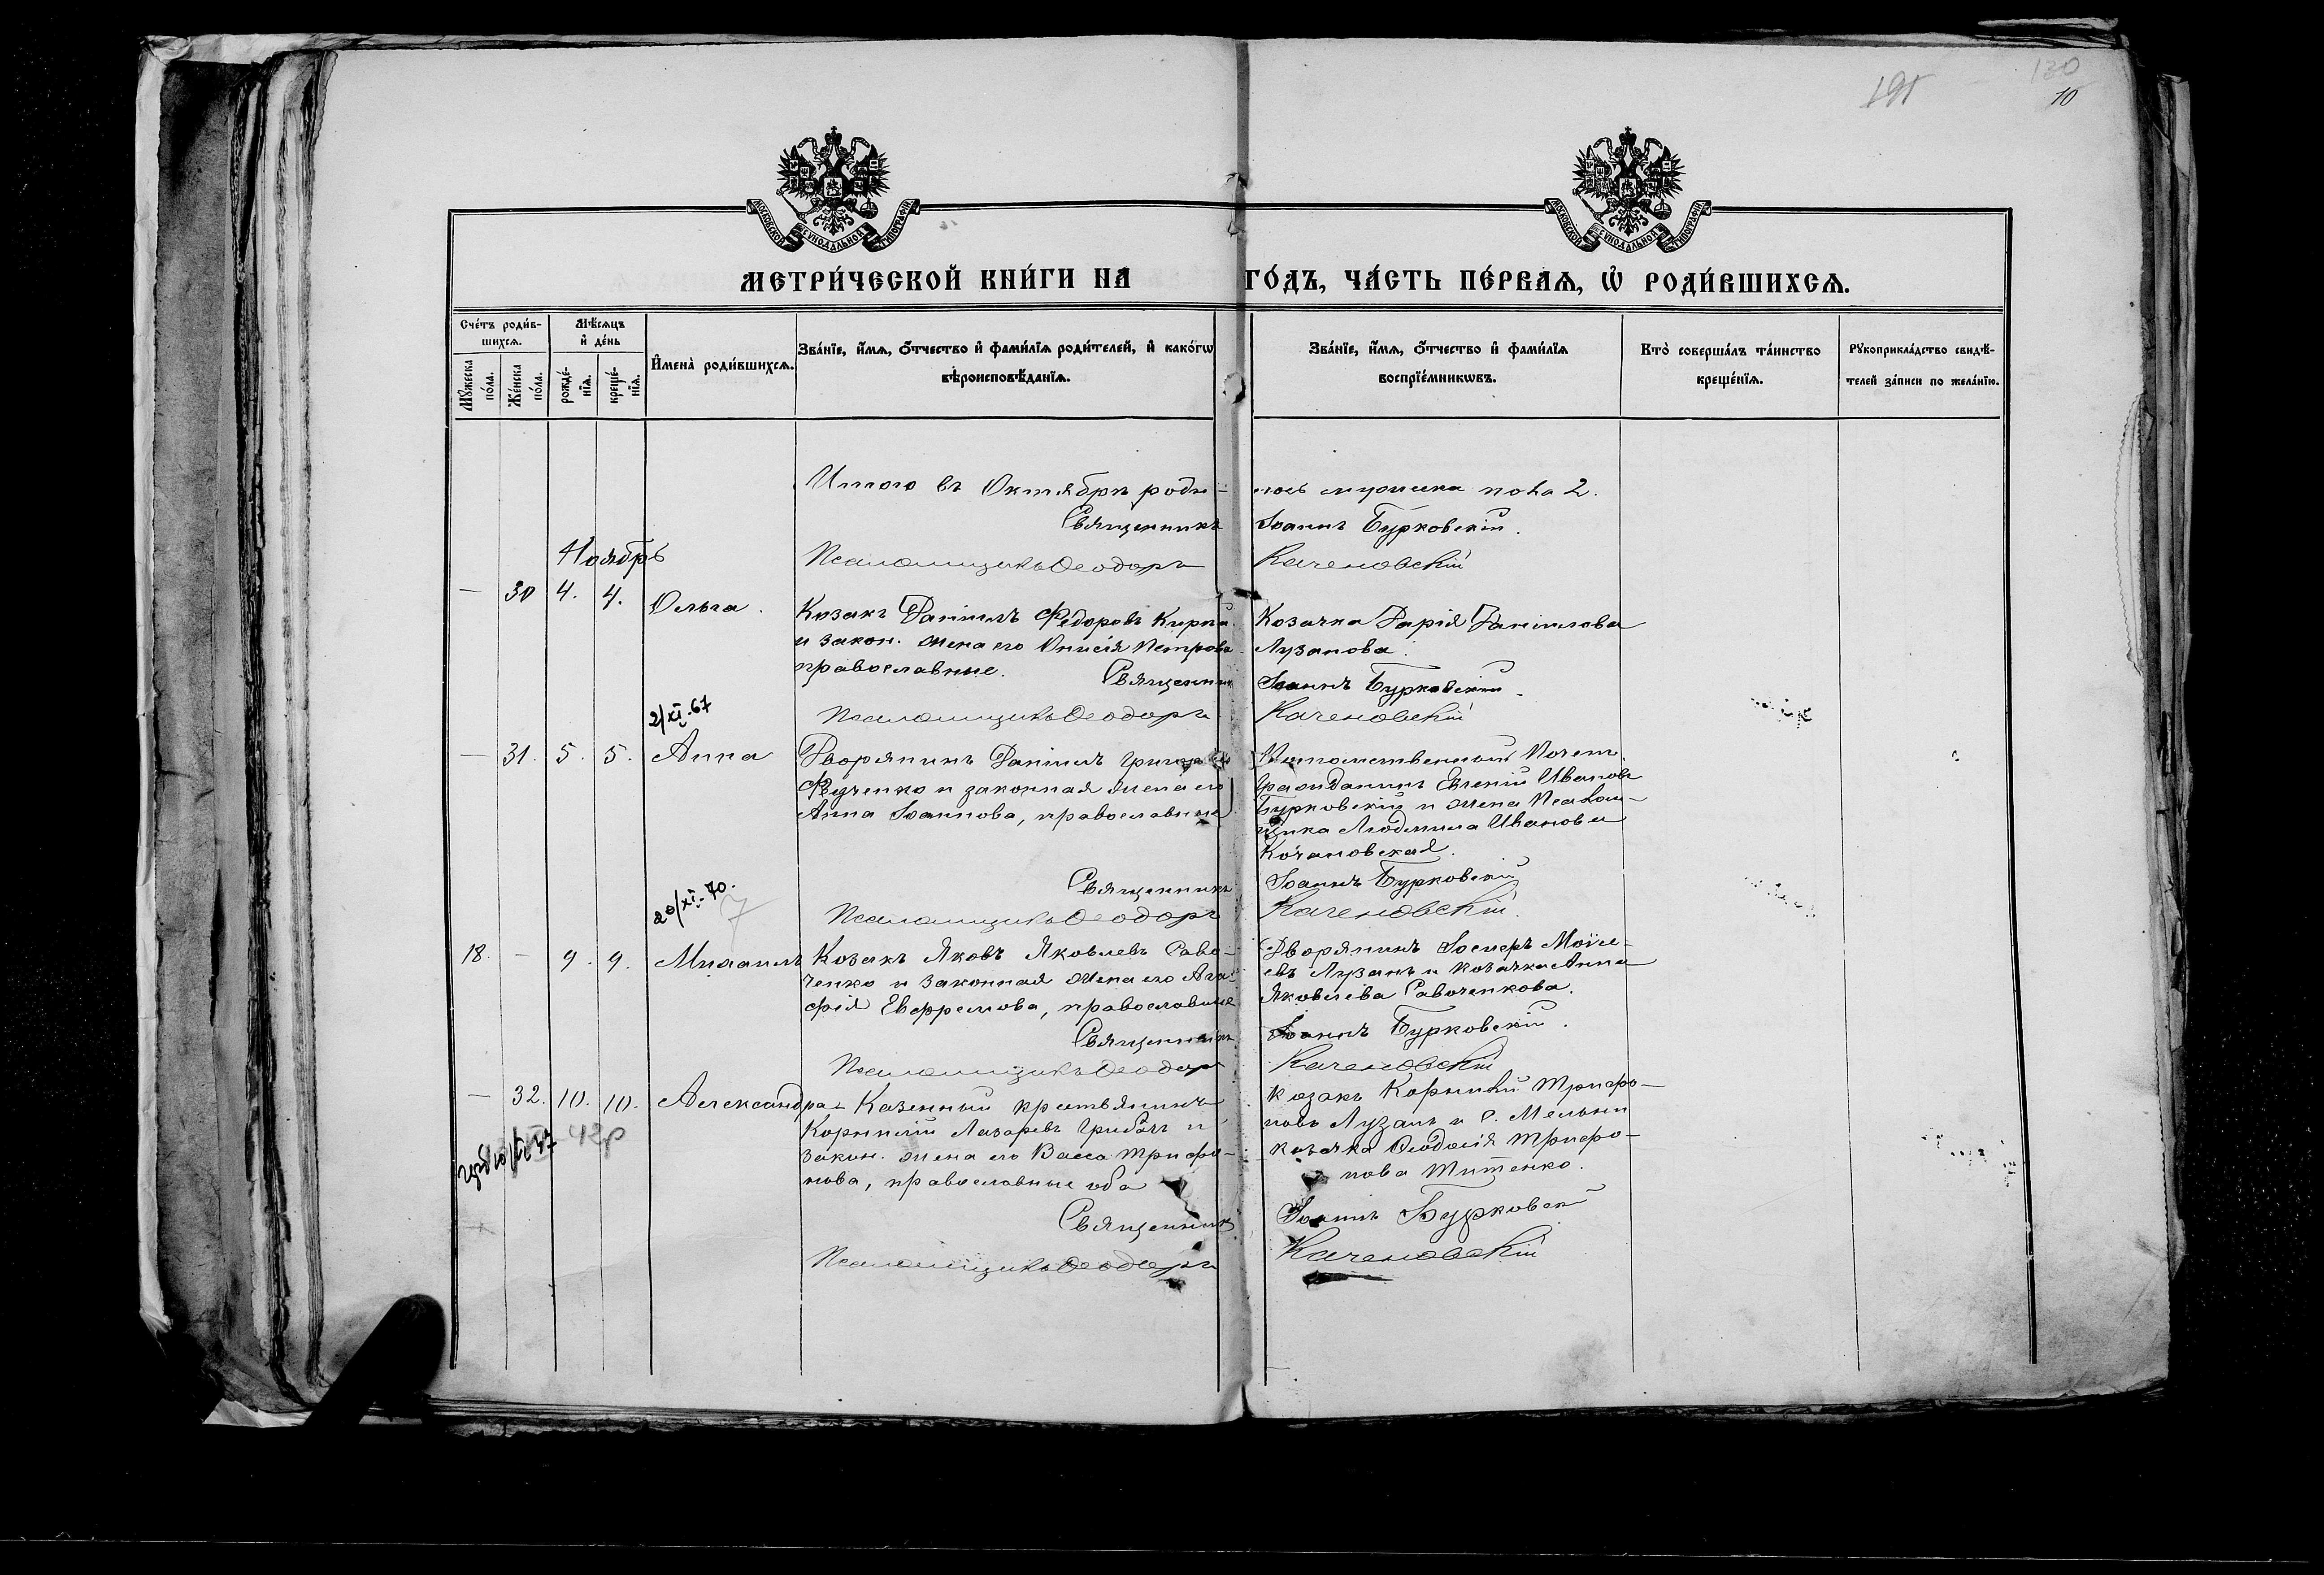 191
130
10
МОСКОВСКОЙ СѴНОДАЛЬНОЙ ТИПОГРАФІИ
МОСКОВСКОЙ СѴНОДАЛЬНОЙ ТИПОГРАФІИ
МЕТРИ́ЧЕСКОЙ КНИ́ГИ НА ГО́ДЪ, ЧА́СТЬ ПЕ́РВАѦ, Ѡ҆ РОДИ́ВШИХСѦ.
Сче́тъ роди́в-
шихсѧ.
Мꙋжеска по́ла.
Же́нска по́ла.
Мѣ́сѧцъ
и҆ де́нь
рожде́-
нїѧ.
креще́-
нїѧ.
И҆мена̀ роди́вшихсѧ.
Зва́нїе, и҆́мѧ, ѻ҆́тчество и҆ фами́лїѧ роди́телей, и҆ како́гѡ
вѣроисповѣ́данїѧ.
Зва́нїе, и҆́мѧ, ѻ҆́тчество и҆ фами́лїѧ
воспрїе́мникѡвъ.
Кто̀ соверша́лъ та́инство
креще́нїѧ.
Рꙋкоприкла́дство свидѣ́-
телей за́писи по жела́нїю.
Итого въ Октябрѣ роди-
лось мужеска пола 2.
Священникъ Іоаннъ Бурковскій.
Псаломщикъ Ѳеодоръ Каченовскій
Ноябрь
— 30 4. 4. Ольга.
Козакъ Даніилъ Ѳедоровъ
и закон. жена его Онисія Петрова
православные.
Козачка Дарія Даніилова
Лузанова.
Священник Іоаннъ Бурковскій
Псаломщикъ Ѳеодоръ Каченовскій
2/XI.67
— 31. 5. 5. Анна
Дворянинъ Даніилъ
Федченко и законная жена его
Анна Іоаннова, православные
Потомственный Почет.
Гражданинъ Евгеній Ивановъ
Бурковскій и жена Псалом-
щика Людмила Иванова
Кочановская.
Священникъ Іоаннъ Бурковскій
Псаломщикъ Ѳеодоръ Каченовскій.
20/XI-70.
7
18. — 9. 9. Михаилъ
Козакъ Яковъ Яковлевъ Саво-
ченко и законная жена его Ага-
фія Евфремова, православные
Дворянинъ Іосифъ Моисе-
евъ Лузанъ и козачка Анна
Яковлева Савоченкова.
Священникъ Іоаннъ Бурковскій.
Псаломщикъ Ѳеодор Каченовскій
— 32. 10. 10. Александра
Казенный крестьянинъ
Корнилій Лазаревъ Грибачъ и
закон. жена его Васса Трифо-
нова, православные оба
Козакъ Корнилій Трифо-
новъ Лузанъ и с. Мельни
козачка Ѳеодосія Трифо-
нова Титенко.
Священник Іоаннъ Бурковскій
Псаломщикъ Ѳеодоръ Каченовскій